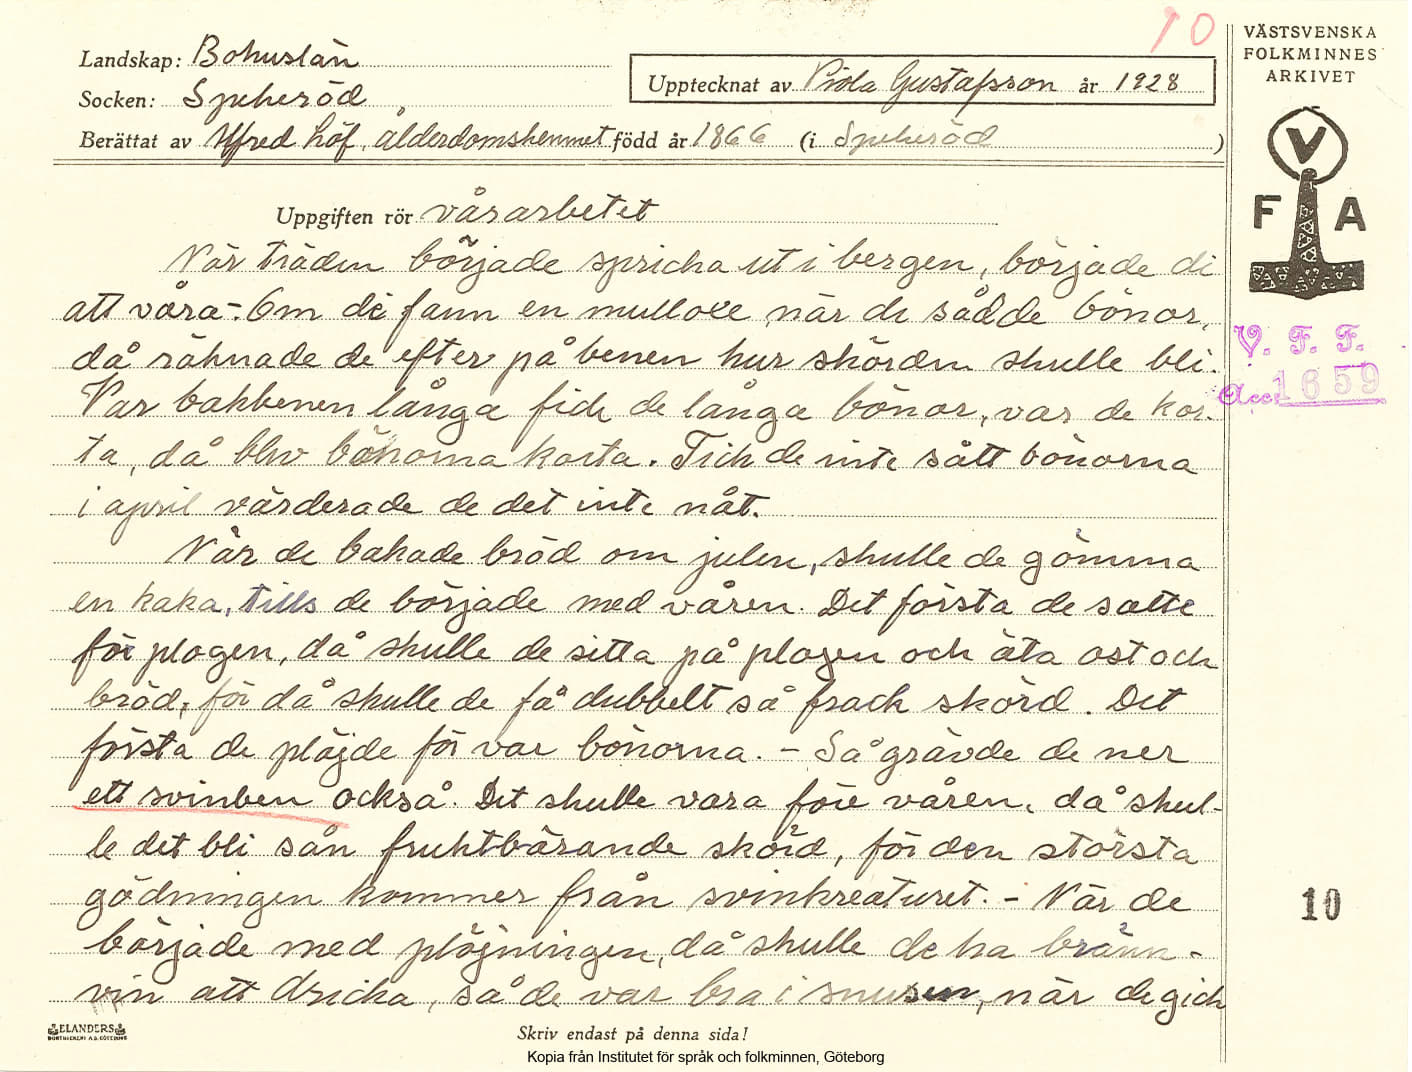 10
VÄSTSVENSKA
FOLKMINNES
ARKIVET
Landskap: Bohuslän
Socken: Spekeröd
Upptecknat av Viola Gustafsson år 1928
Berättat av Alfred Löf, ålderdomshemmet född år 1866 (i Spekeröd )
V
F A
Uppgiften rör vårarbetet
När träden började spricka ut i bergen, började di
att våra.- Om di fann en mulloxe när de sådde bönor,
då räknade de efter på benen hur skörden skulle bli.
Var bakbenen långa fick de långa bönor, var de kor-
ta, då blev bönorna korta. Fick de inte sått bönorna
i april värderade de det inte nåt.
När de bakade bröd om julen, skulle de gömma
en kaka, tills de började med våren. Det första de satte
för plogen, då skulle de sitta på plogen och äta ost och
bröd, för då skulle de få dubbelt så frack skörd. Det
första de plöjde för var bönorna. - Så grävde de ner
ett svinben också. Det skulle vara före våren, då skul-
le det bli sån fruktbärande skörd, för den största
gödningen kommer från svinkreaturet. - När de
började med plöjningen, då skulle de ha bränn-
vin att dricka, så de var bra i snusen, när de gick
V. F. F.
Acc. 1659
10
ELANDERS
BOKTRYCKERI A.B. GÖTEBORG
Skriv endast på denna sida!
Kopia från Institutet för språk och folkminnen, Göteborg